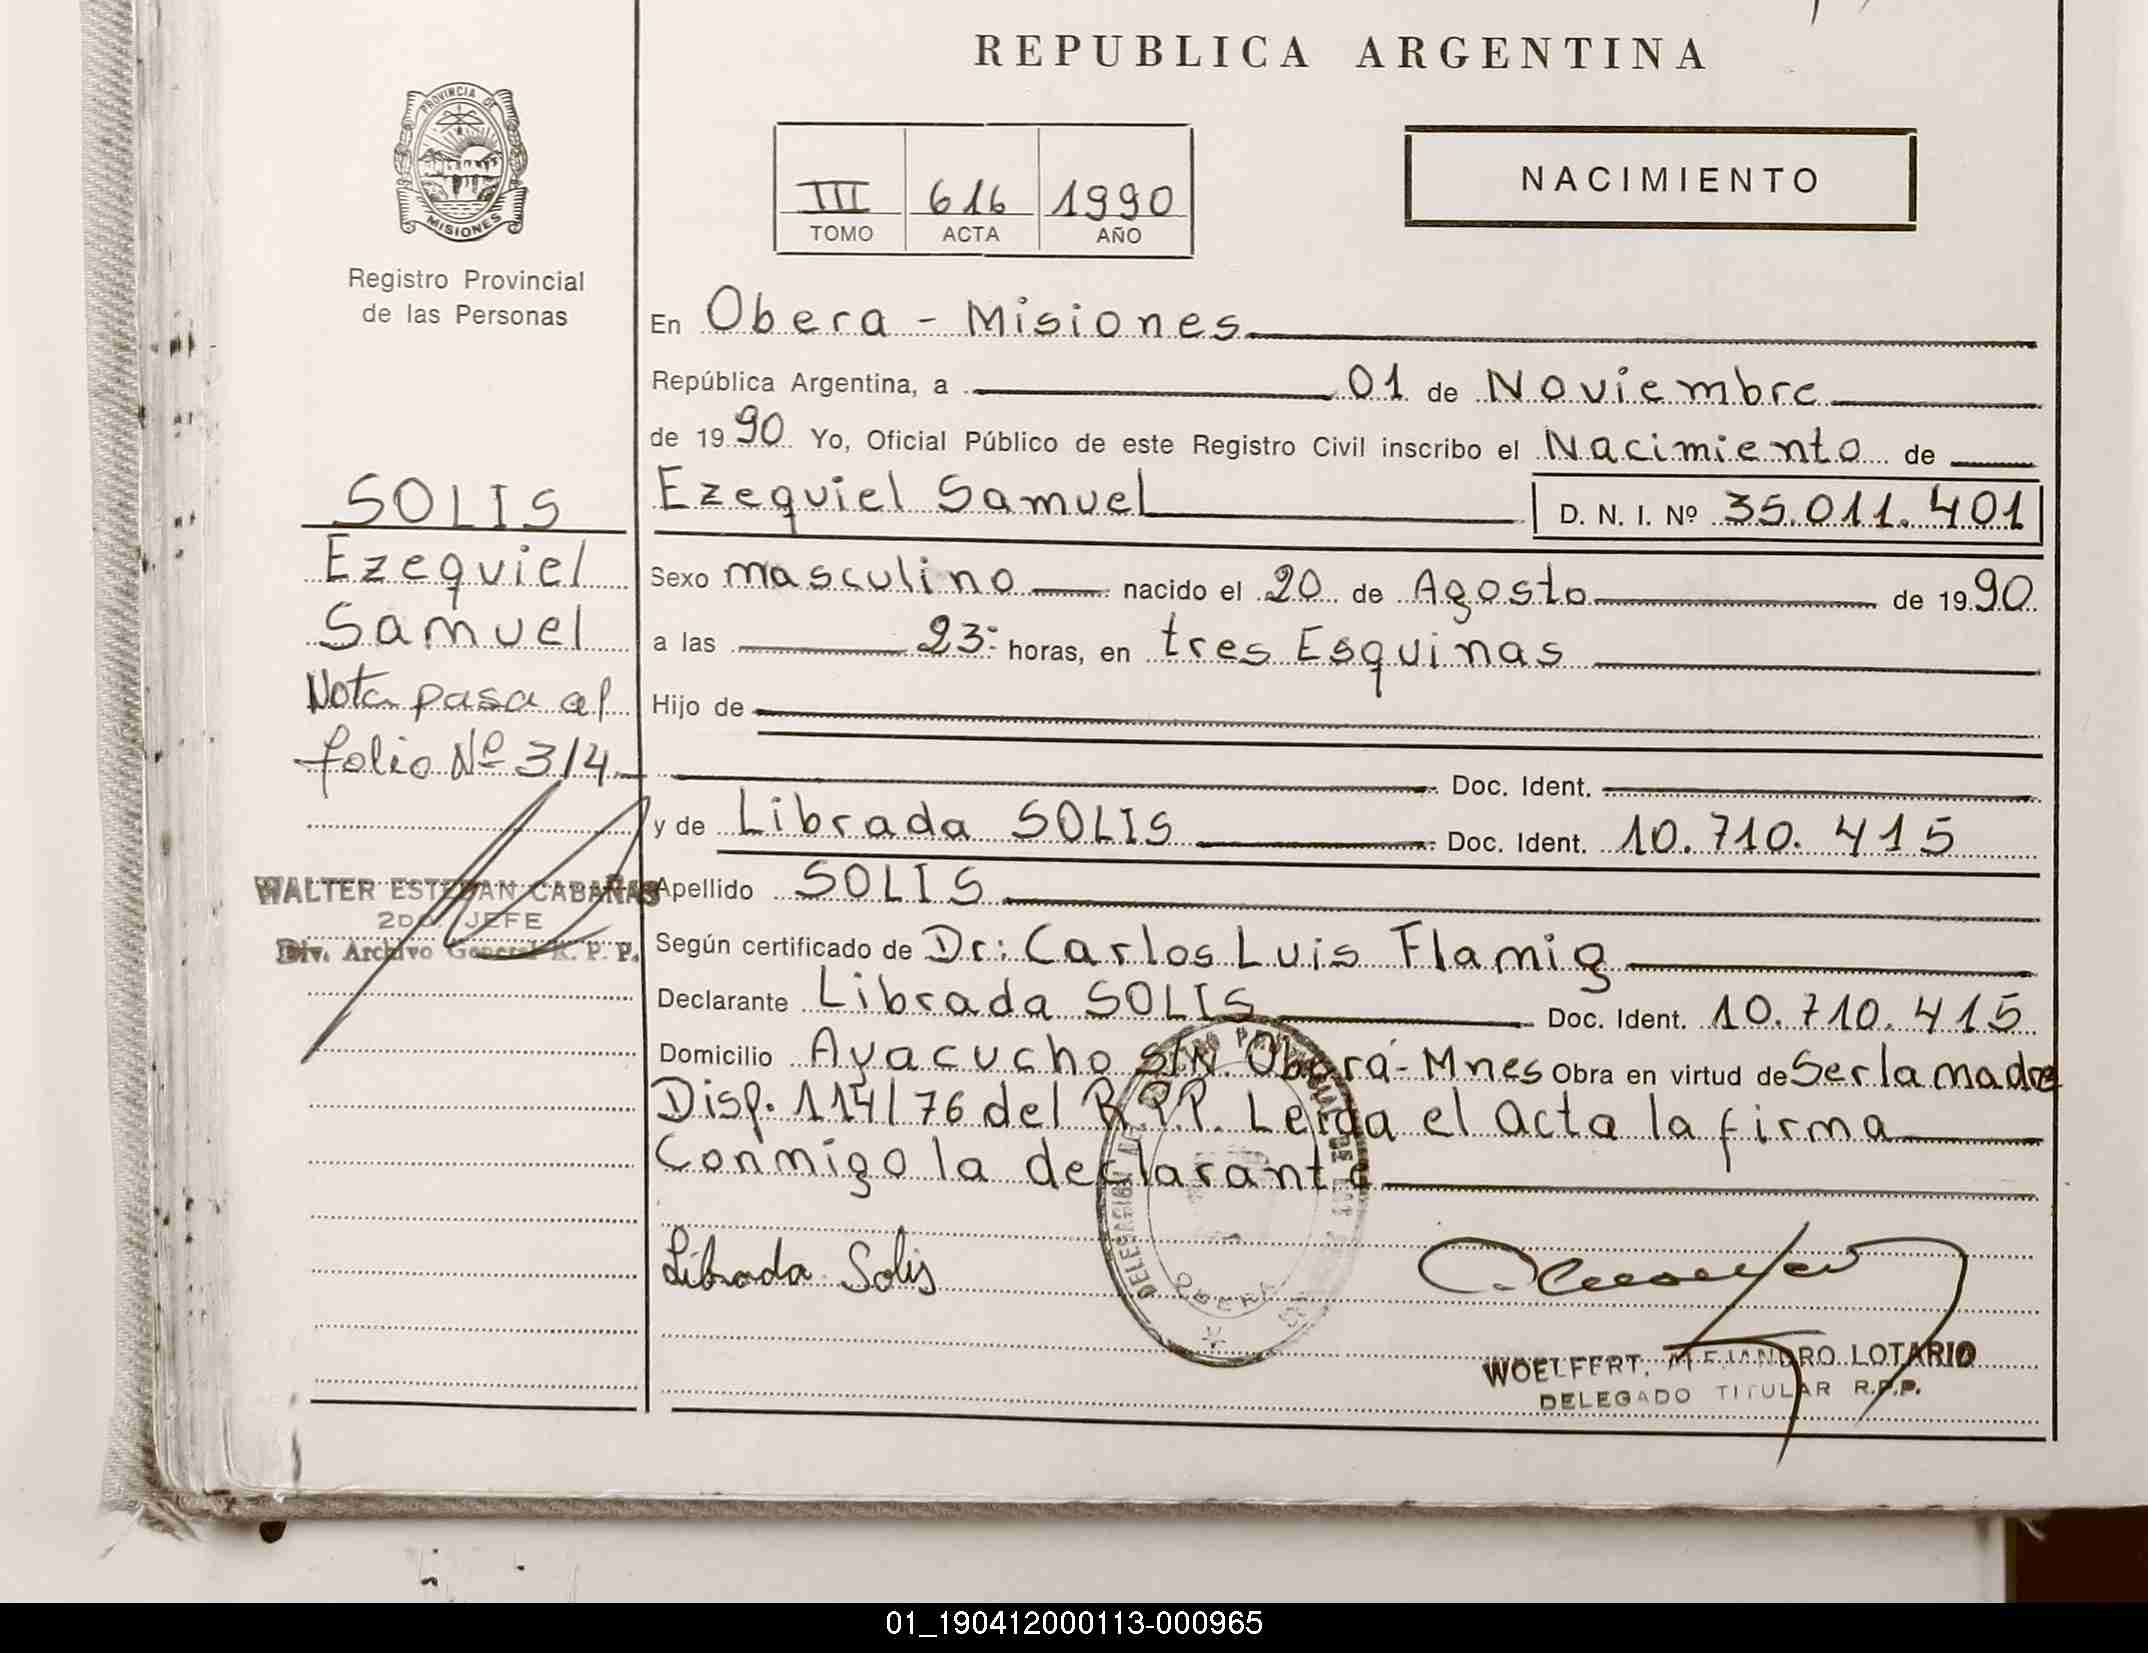 REPUBLICA ARGENTINA
PROVINCIA DE
MISIONES
Registro Provincial
de las Personas
III 616 1990
TOMO ACTA AÑO
NACIMIENTO
En Obera - Misiones
República Argentina, a 01 de Noviembre
de 1990 Yo, Oficial Público de este Registro Civil inscribo el Nacimiento de
Ezequiel Samuel D. N. I. Nº 35.011.401
Sexo masculino nacido el 20 de Agosto de 1990
a las 23:- horas, en tres Esquinas
Hijo de
Doc. Ident.
y de Librada SOLIS Doc. Ident. 10.710.415
Apellido SOLIS
Según certificado de Dr: Carlos Luis Flamig
Declarante Librada SOLIS Doc. Ident. 10.710.415
Domicilio Ayacucho S/N. Oberá - Mnes Obra en virtud de Ser la madre
Disp. 114/76 del R.P.P. Leida el Acta la firma
Conmigo la declarante
Librada Solis
WOELFERT, ALEJANDRO LOTARIO
DELEGADO TITULAR R.P.P.
DELEGACION
OBERA
SOLIS
Ezequiel
Samuel
Nota pasa al
folio Nº 314
WALTER ESTEBAN CABAÑAS
2DO. JEFE
Div. Archivo General R. P. P.
01_190412000113-000965